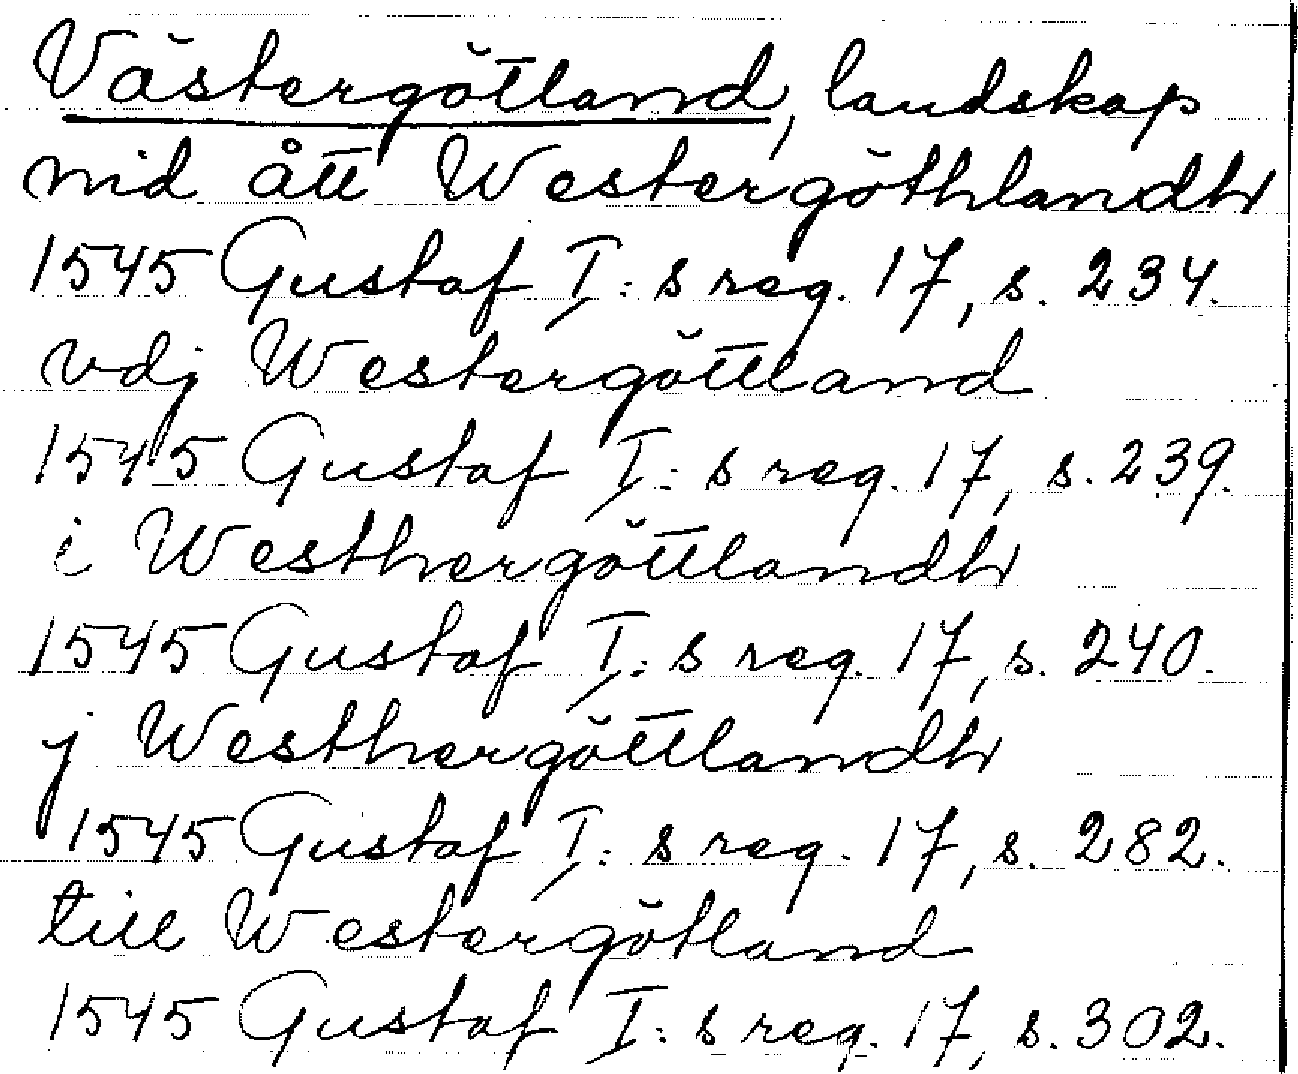 Västergötland, landskap
nid ått Westergöthlandh
1545 Gustaf I:s reg. 17, s. 234.
vdj Westergöttland
1545 Gustaf I:s reg. 17, s. 239.
i Westhergöttlandh
1545 Gustaf I:s reg. 17, s. 240.
j Westhergöttlandh
1545 Gustaf I:s reg. 17, s. 282.
till Westergötland
1545 Gustaf I:s reg. 17, s. 302.